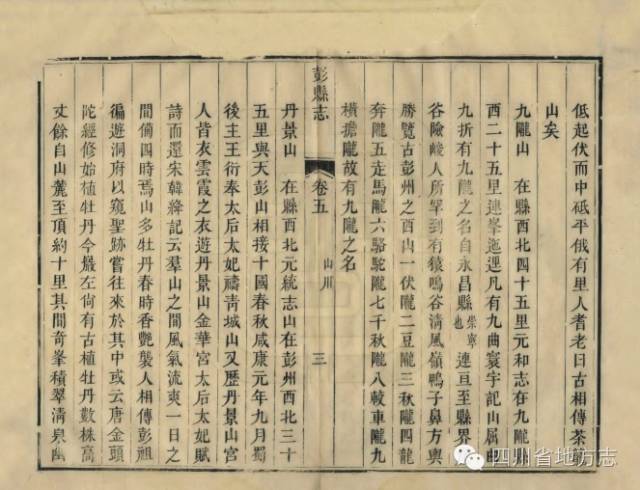 低起伏而中砥平俄有里人耆老日古相傳茶
山矣
九隴山 在縣西北四十五里元和志在九隴
西二十五里連峯迤邐凡有九曲寰宇記山属
九折有九隴之名自永昌縣崇寧也連亘至縣界
谷險峻人所罕到有猿鳴谷清風嶺鴨子鼻方輿
勝覽古彭州之西山一伏隴二豆隴三秋隴四龍
奔隴五走馬隴六駱駝隴七千秋隴八較車隴九
橫擔隴故有九隴之名
彭縣志 卷五 山川 三
丹景山 在縣西北元統志山在彭州西北三十
五里與天彭山相接十國春秋咸康元年九月蜀
後主王衍奉太后太妃禱青城山又歷丹景山宮
人皆衣雲霞之衣遊丹景山金華宮太后太妃賦
詩而還宋韓絳記云羣山之間風氣流爽一日之
間備四時焉山多牡丹春時香艷襲人相傳彭祖
徧遊洞府以窺聖跡嘗往來於其中或云唐金頭
陀經修始植牡丹今最左尙有古植牡丹數株高
丈餘自山麓至頂約十里其間奇峯積翠清泉幽
四川省地方志